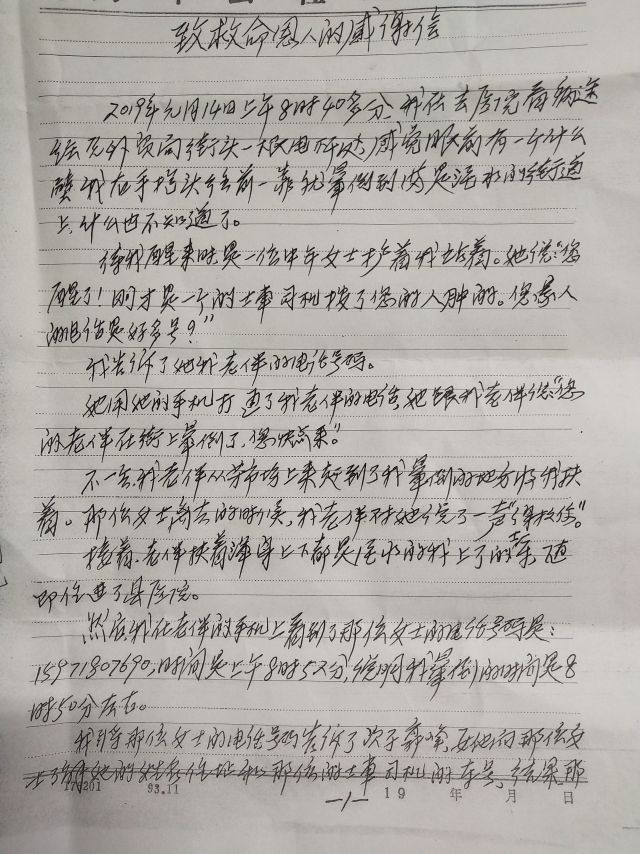 致救命恩人的感谢信
2019年元月14日上午8时40多分,我在去医院看病途
经 外贸局街头一根电杆处,感觉眼前有一个什么
我右手 头 前一靠就晕倒到满是活水的街道
上,什么也不知道了。
待我醒来时是一位中年女士扶着我站着。她说:"您
醒了!刚才是一个的士车司机拨了您的人肿的。您家人
的电话是好多号?"
我告诉了她我老伴的电话号码。
她用她的手机打通了我老伴的电话,她跟我老伴说:"您
的老伴在街上晕倒了,您快点来"。
不一会,我老伴从菜市场上来赶到了我晕倒的地方将我扶
着。那位女士离去的时候,我老伴才对她说了一声"谢枚你"。
接着,老伴扶着浑身上下都是 水的我上了的士车,随
即住进了县医院。
然后我在老伴的手机上看到了那位女士的电话号码是:
15971807690,时间是上午8时52分,说明我晕倒的时间是8
时50分左右。
我将那位女士的电话号码告诉了次子郭峰,要他向那位女
士 她的姓名住址和那位的士车司机的车号,结果那
17201 93.11 19 年 月 日
-1-